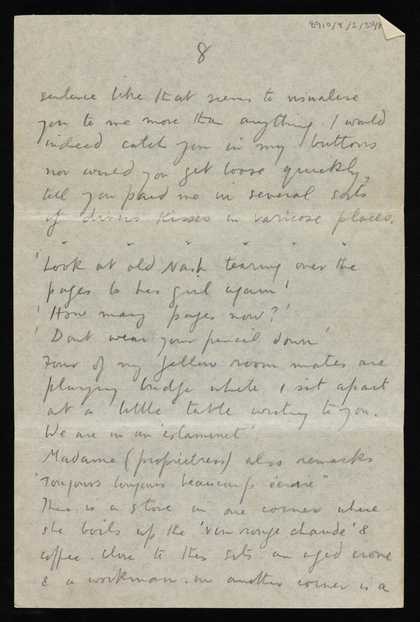 8910/1/2/
8
sentence like that seems to visualise
you to me more than anything. I would
indeed catch you in my buttons
nor would you get loose quickly,
till you paid me in several sorts
of divers kisses in various places.
" " " " "
'Look at old Nash tearing over the
pages to his girl again'
'How many pages now?'
'Dont wear your pencil down'
Four of my fellow room mates are
playing bridge while I sit apart
at a little table writing to you.
We are in an 'estaminet'
Madame (proprietress) also remarks
"Toujours toujours beaucoup écrire"
There is a stove in one corner where
she boils up the 'vin rouge chaude' &
coffee. Close to this sits an aged crone
& a workman. in another corner is a